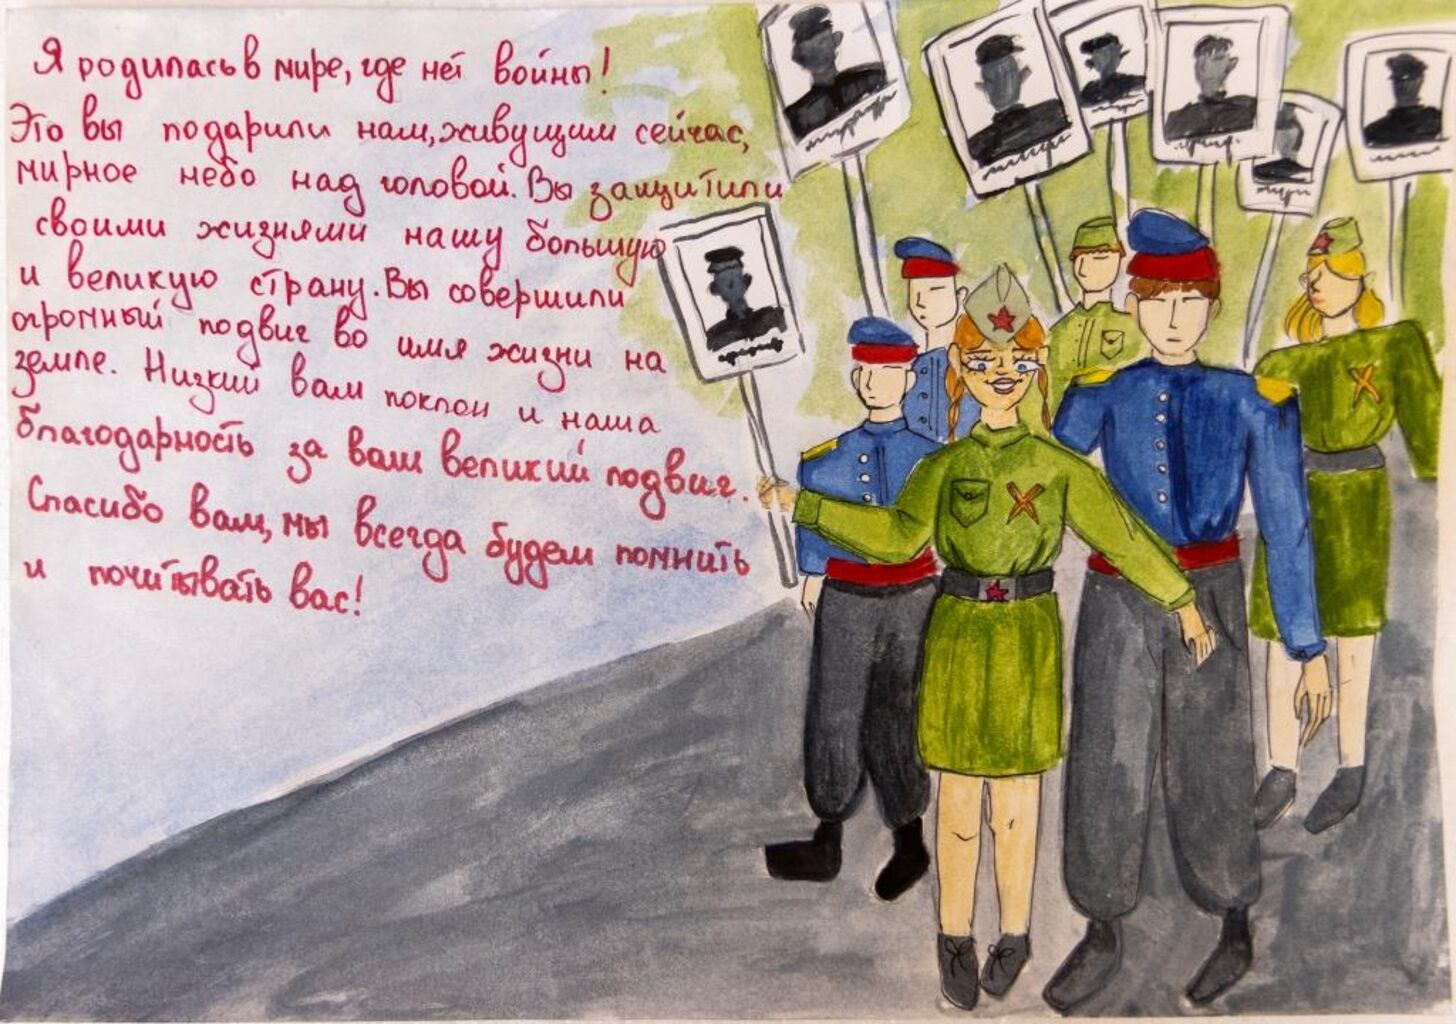 Я родилась в мире, где нет войны!
Это вы подарили нам, живущим сейчас,
мирное небо над головой. Вы защитили
своими жизнями нашу большую
и великую страну. Вы совершили
огромный подвиг во имя жизни на
земле. Низкий вам поклон и наша
благодарность за ваш великий подвиг.
Спасибо вам, мы всегда будем помнить
и почитывать вас!